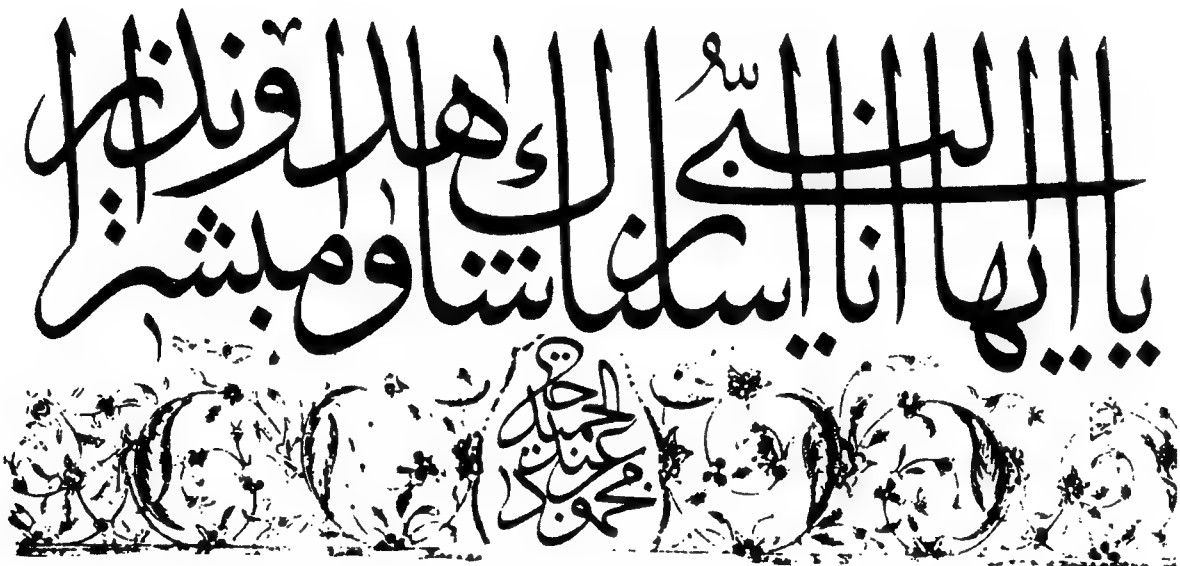 يا ايها النبي انا ارسلناك شاهدا ومبشرا ونذيرا
محمود بن عبد الحميد